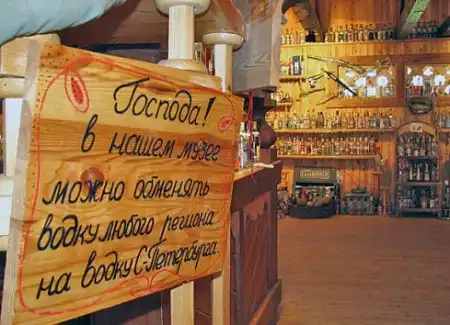 Господа!
в нашем музее
можно обменять
водку любого региона
на водку С-Петербурга.